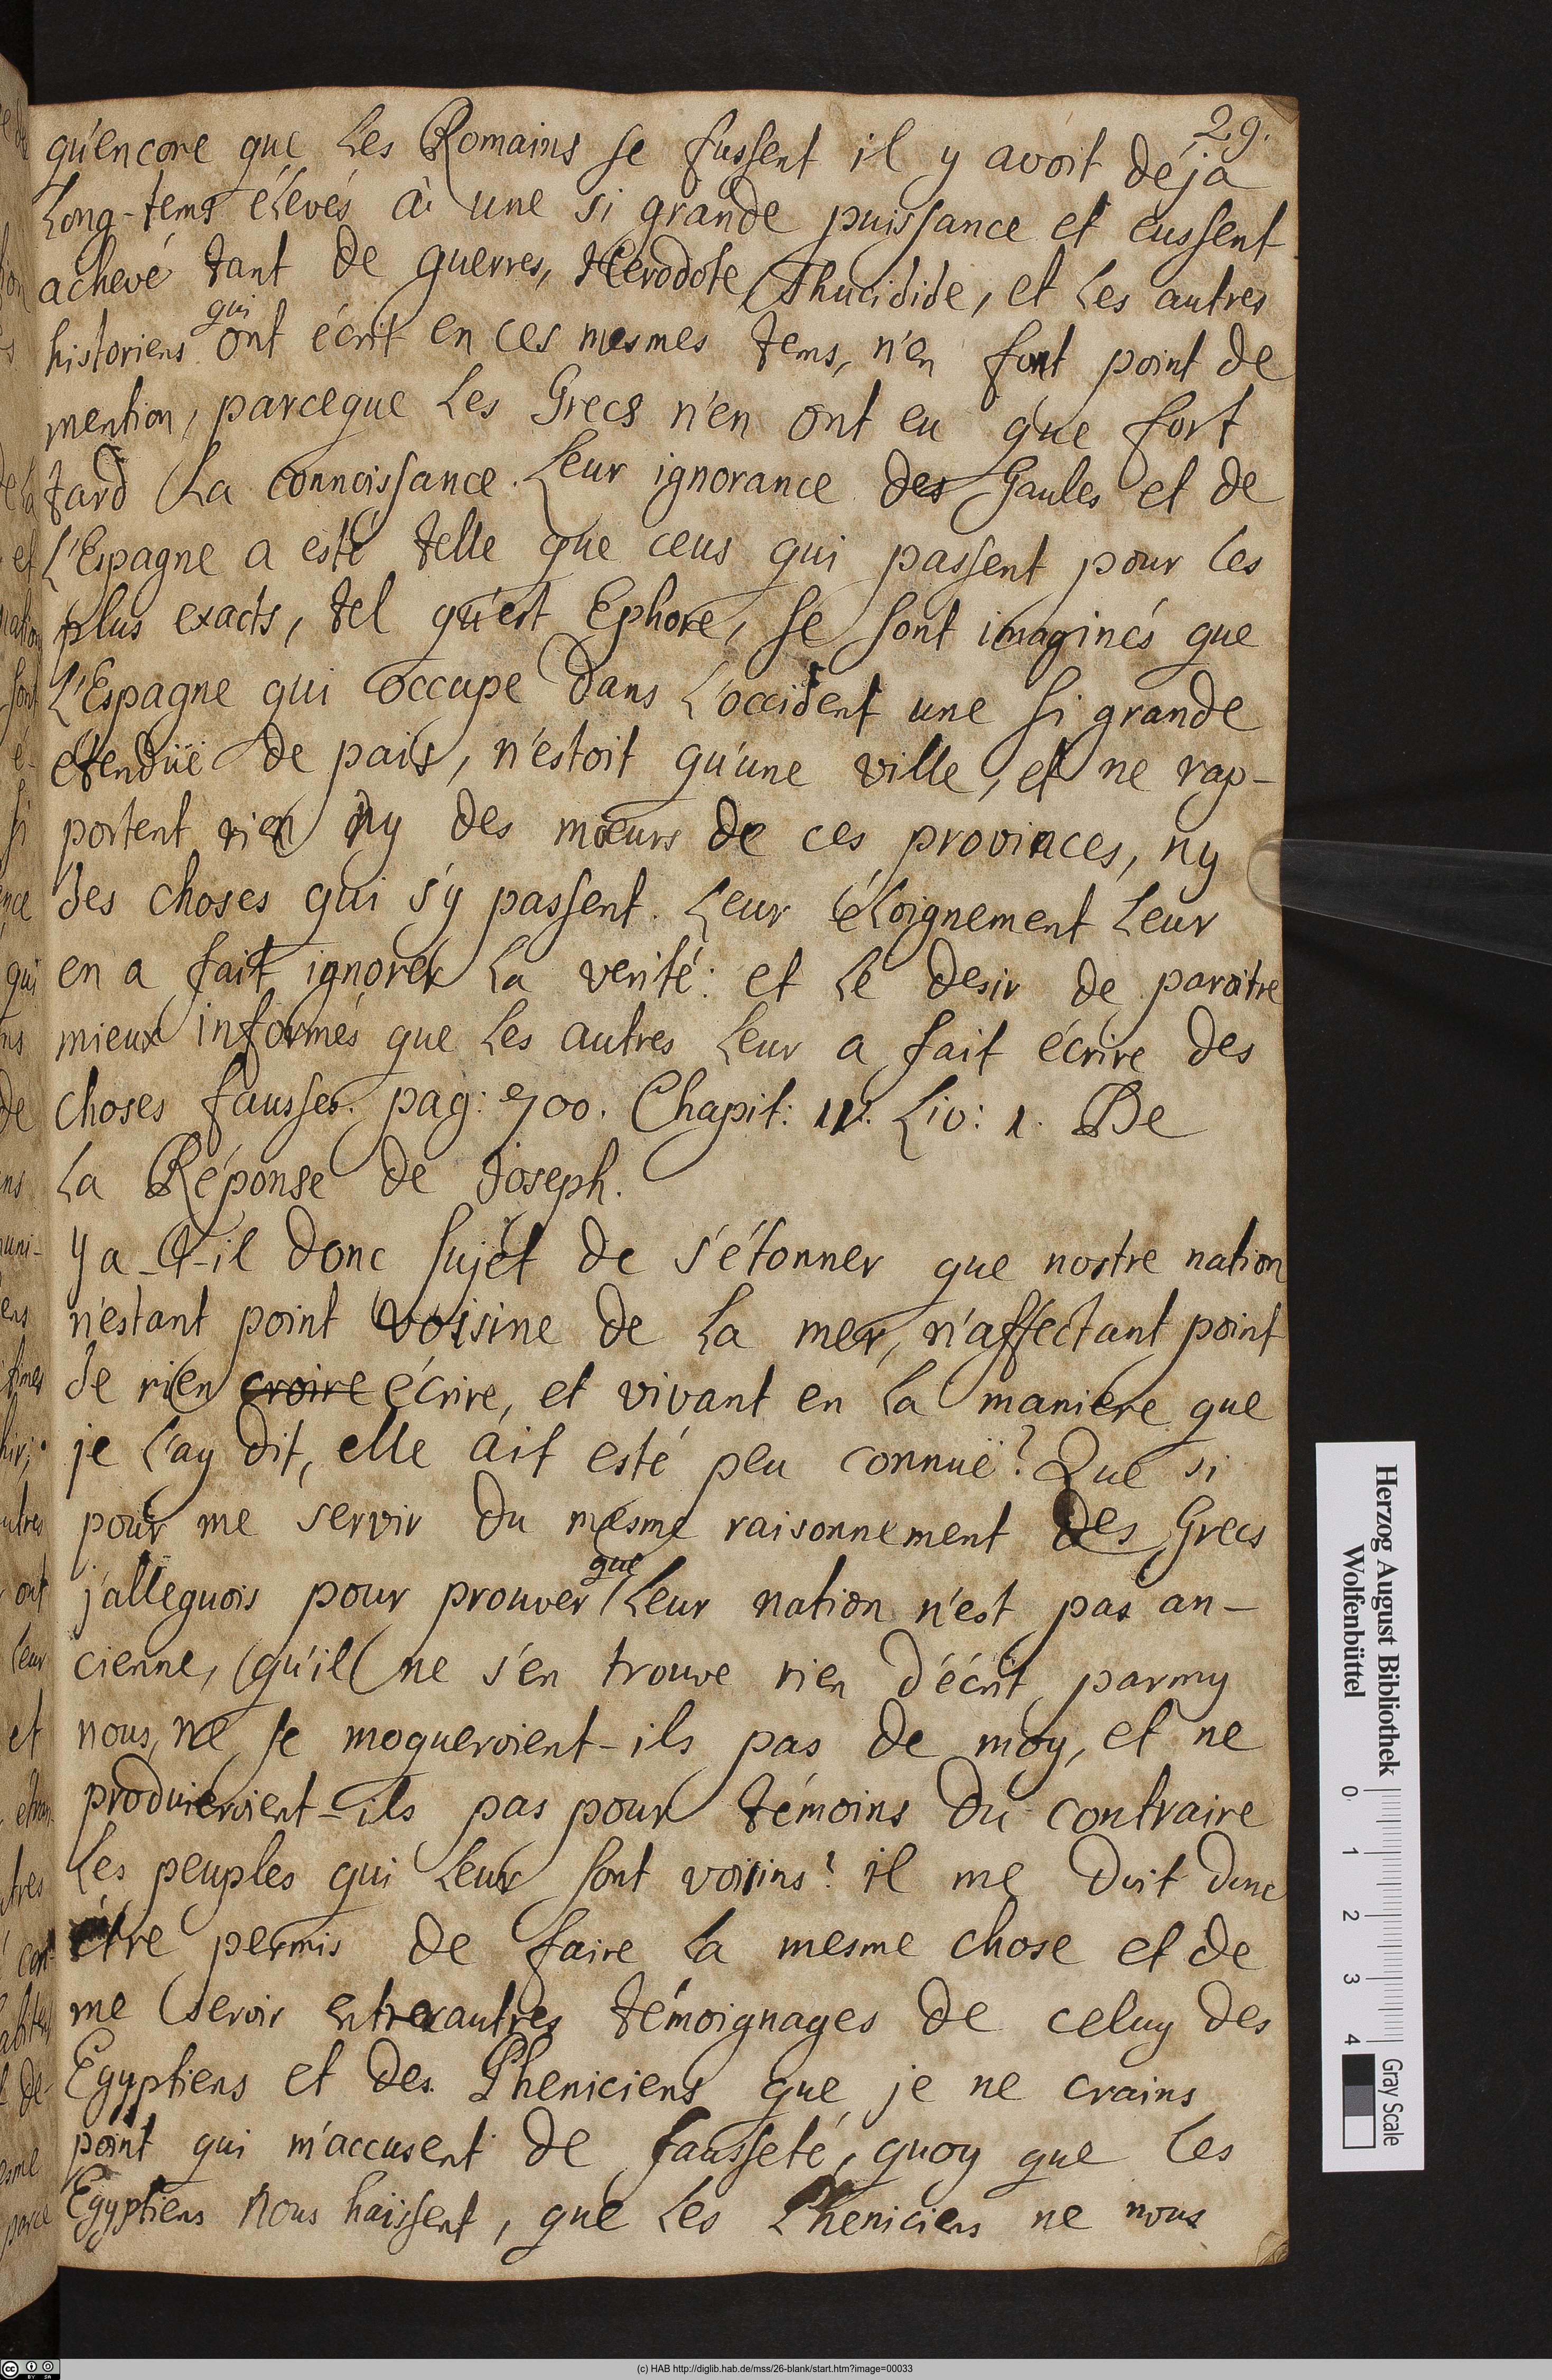 29.
qu'encore que les Romains se fussent il y avoit déja
long-tems élevés à une si grande puissance et eussent
achevé tant de guerres, Herodote, Thucidide, et les autres
historiens qui ont écrit en ces mesmes tems, n'en font point de
mention, parceque les Grecs n'en ont eu que fort
tard la connoissance. Leur ignorance des Gaules et de
l'Espagne a esté telle que ceus qui passent pour les
plus exacts, tel qu'est Ephore, se sont imaginés que
L'Espagne qui occupe dans l'occident une si grande
etenduë de pais, n'estoit qu'une ville, et ne rap-
portent rien ny des mœurs de ces provinces, ny
des choses qui s'y passent. Leur éloignement leur
en a fait ignorer la verité: et le desir de paroitre
mieux informés que les autres leur a fait écrire des
choses fausses. pag: 700. Chapit: IV. Liv: 1. De
la Réponse de Joseph.
Y a-t-il donc sujet de s'étonner que nostre nation
n'estant point voisine de la mer, n'affectant point
de rien croire écrire, et vivant en la maniere que
je l'ay dit, elle ait esté peu connuë? Que si
pour me servir du mesme raisonnement des Grecs
j'alleguois pour prouver que leur nation n'est pas an-
cienne, qu'il ne s'en trouve rien d'écrit parmy
nous, ne se moqueroient-ils pas de moy, et ne
produieroient-ils pas pour témoins du contraire
les peuples qui leur sont voisins? il me doit donc
être permis de faire la mesme chose et de
me servir entre autres témoignages de celuy des
Egyptiens et des Pheniciens que je ne crains
point qui m'accusent de fausseté, quoy que les
Egyptiens nous haïssent, que les Pheniciens ne nous
Herzog August Bibliothek
Wolfenbüttel
0 1 2 3 4
Gray Scale
(c) HAB http://diglib.hab.de/mss/26-blank/start.htm?image=00033